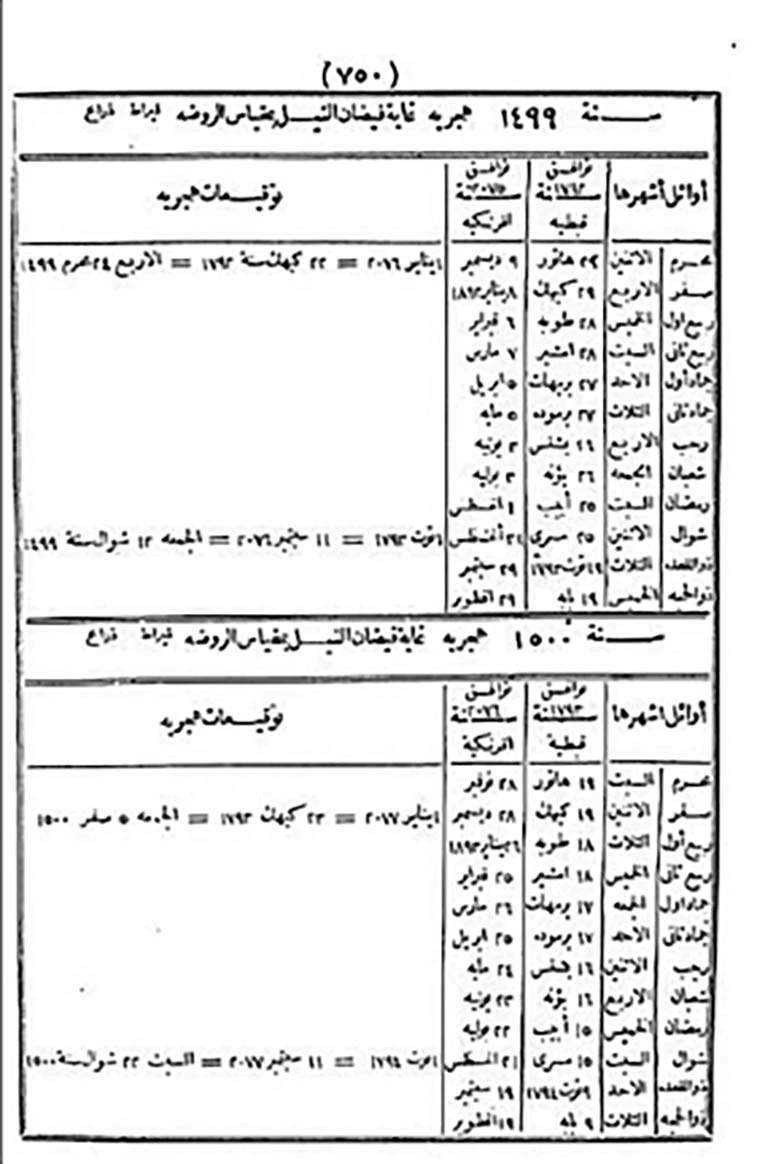 (٧٥٠)
سنة ١٤٩٩ هجريه غاية فيضان النيل بمقياس الروضه قيراط ذراع
أوائل أشهرها توافق سنة ١٧٩٢ قبطيه توافق سنة ٢٠٧٥ افرنكيه توقيعات هجريه
محرم الاثنين ٢٩ هاتور ٩ ديسمبر ١ يناير ٢٠٧٦ = ٢٢ كيهك سنة ١٧٩٢ = الاربع ٢٤ محرم ١٤٩٩
صفر الاربع ٢٩ كيهك ٨ يناير
ربيع اول الخميس ٢٨ طوبه ٦ فبراير
ربيع ثانى السبت ٢٨ امشير ٧ مارس
جماد أول الاحد ٢٧ برمهات ٥ ابريل
جماد ثانى الثلاث ٢٧ برموده ٥ مايه
رجب الاربع ٢٦ بشنس ٣ يونيه
شعبان الجمعه ٢٦ بؤنه ٣ يوليه
رمضان السبت ٢٥ أبيب ١ اغسطس
شوال الاثنين ٢٥ مسرى ٣١ أغسطس ١ توت ١٧٩٣ = ١١ سبتمبر ٢٠٧٦ = الجمعه ١٢ شوال سنة ١٤٩٩
ذو القعده الثلاث ١٩ توت ١٧٩٣ ٢٩ سبتمبر
ذو الحجه الخميس ١٩ بابه ٢٩ اقطوبر
سنة ١٥٠٠ هجريه غاية فيضان النيل بمقياس الروضه قيراط ذراع
أوائل اشهرها توافق سنة ١٧٩٣ قبطية توافق سنة ٢٠٧٦ افرنكية توقيعات هجريه
محرم السبت ١٩ هاتور ٢٨ نوفبر
صفر الاثنين ١٩ كيهك ٢٨ ديسمبر ١ يناير ٢٠٧٧ = ٢٣ كيهك ١٧٩٣ = الجمعه ٥ صفر ١٥٠٠
ربيع أول الثلاث ١٨ طوبه ٢٦ يناير
ربيع ثانى الخميس ١٨ امشير ٢٥ فبراير
جماد اول الجمعه ١٧ برمهات ٢٦ مارس
جماد ثانى الاحد ١٧ برموده ٢٥ ابريل
رجب الاثنين ١٦ بشنس ٢٤ مايه
شعبان الاربع ١٦ بؤنه ٢٣ يونيه
رمضان الخميس ١٥ أبيب ٢٢ يوليه
شوال السبت ١٥ مسرى ٢١ اغسطس ١ توت ١٧٩٤ = ١١ سبتمبر ٢٠٧٧ = السبت ٢٢ شوال سنة ١٥٠٠
ذو القعده الاحد ٩ توت ١٧٩٤ ١٩ سبتمبر
ذو الحجه الثلاث ٩ بابه ١٩ اقطوبر